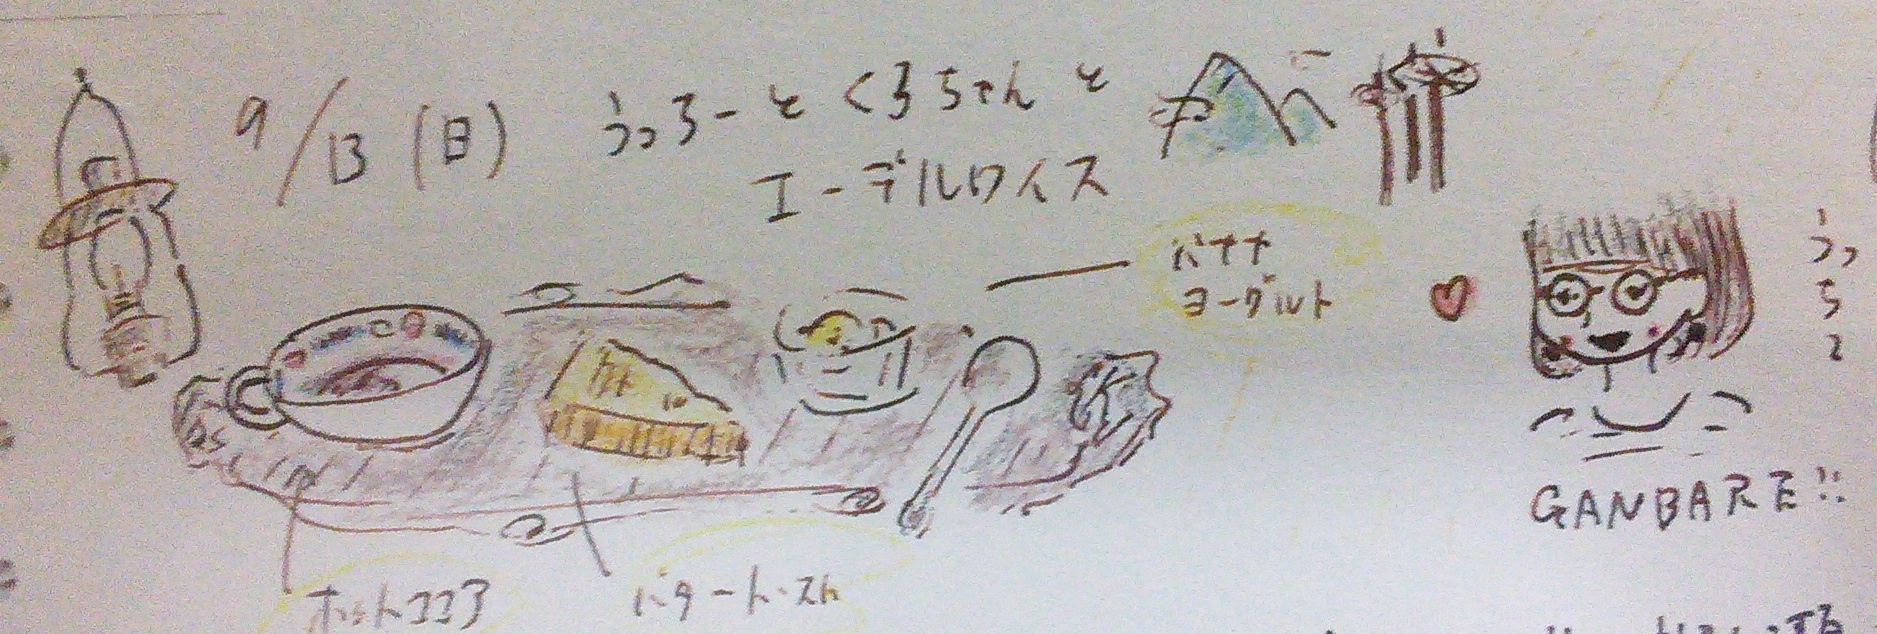 9/13(日) うっろーとくろちゃんと
エーデルワイス
バナナ
ヨーグルト
GANBARE!!
ホットココア
バタートースト